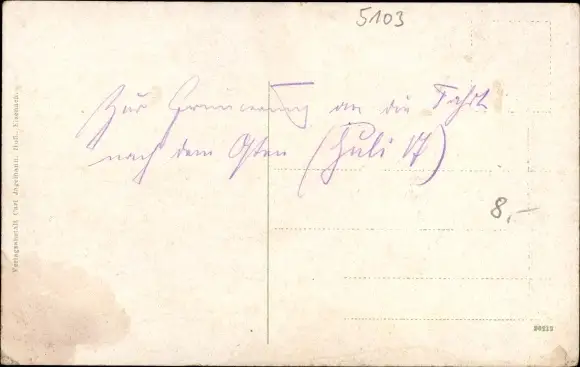 5103
Zur Erinnerung an die Fahrt
nach dem Osten (Juli 17)
8,-
Verlagsanstalt Carl Jagemann, Hofl., Eisenach.